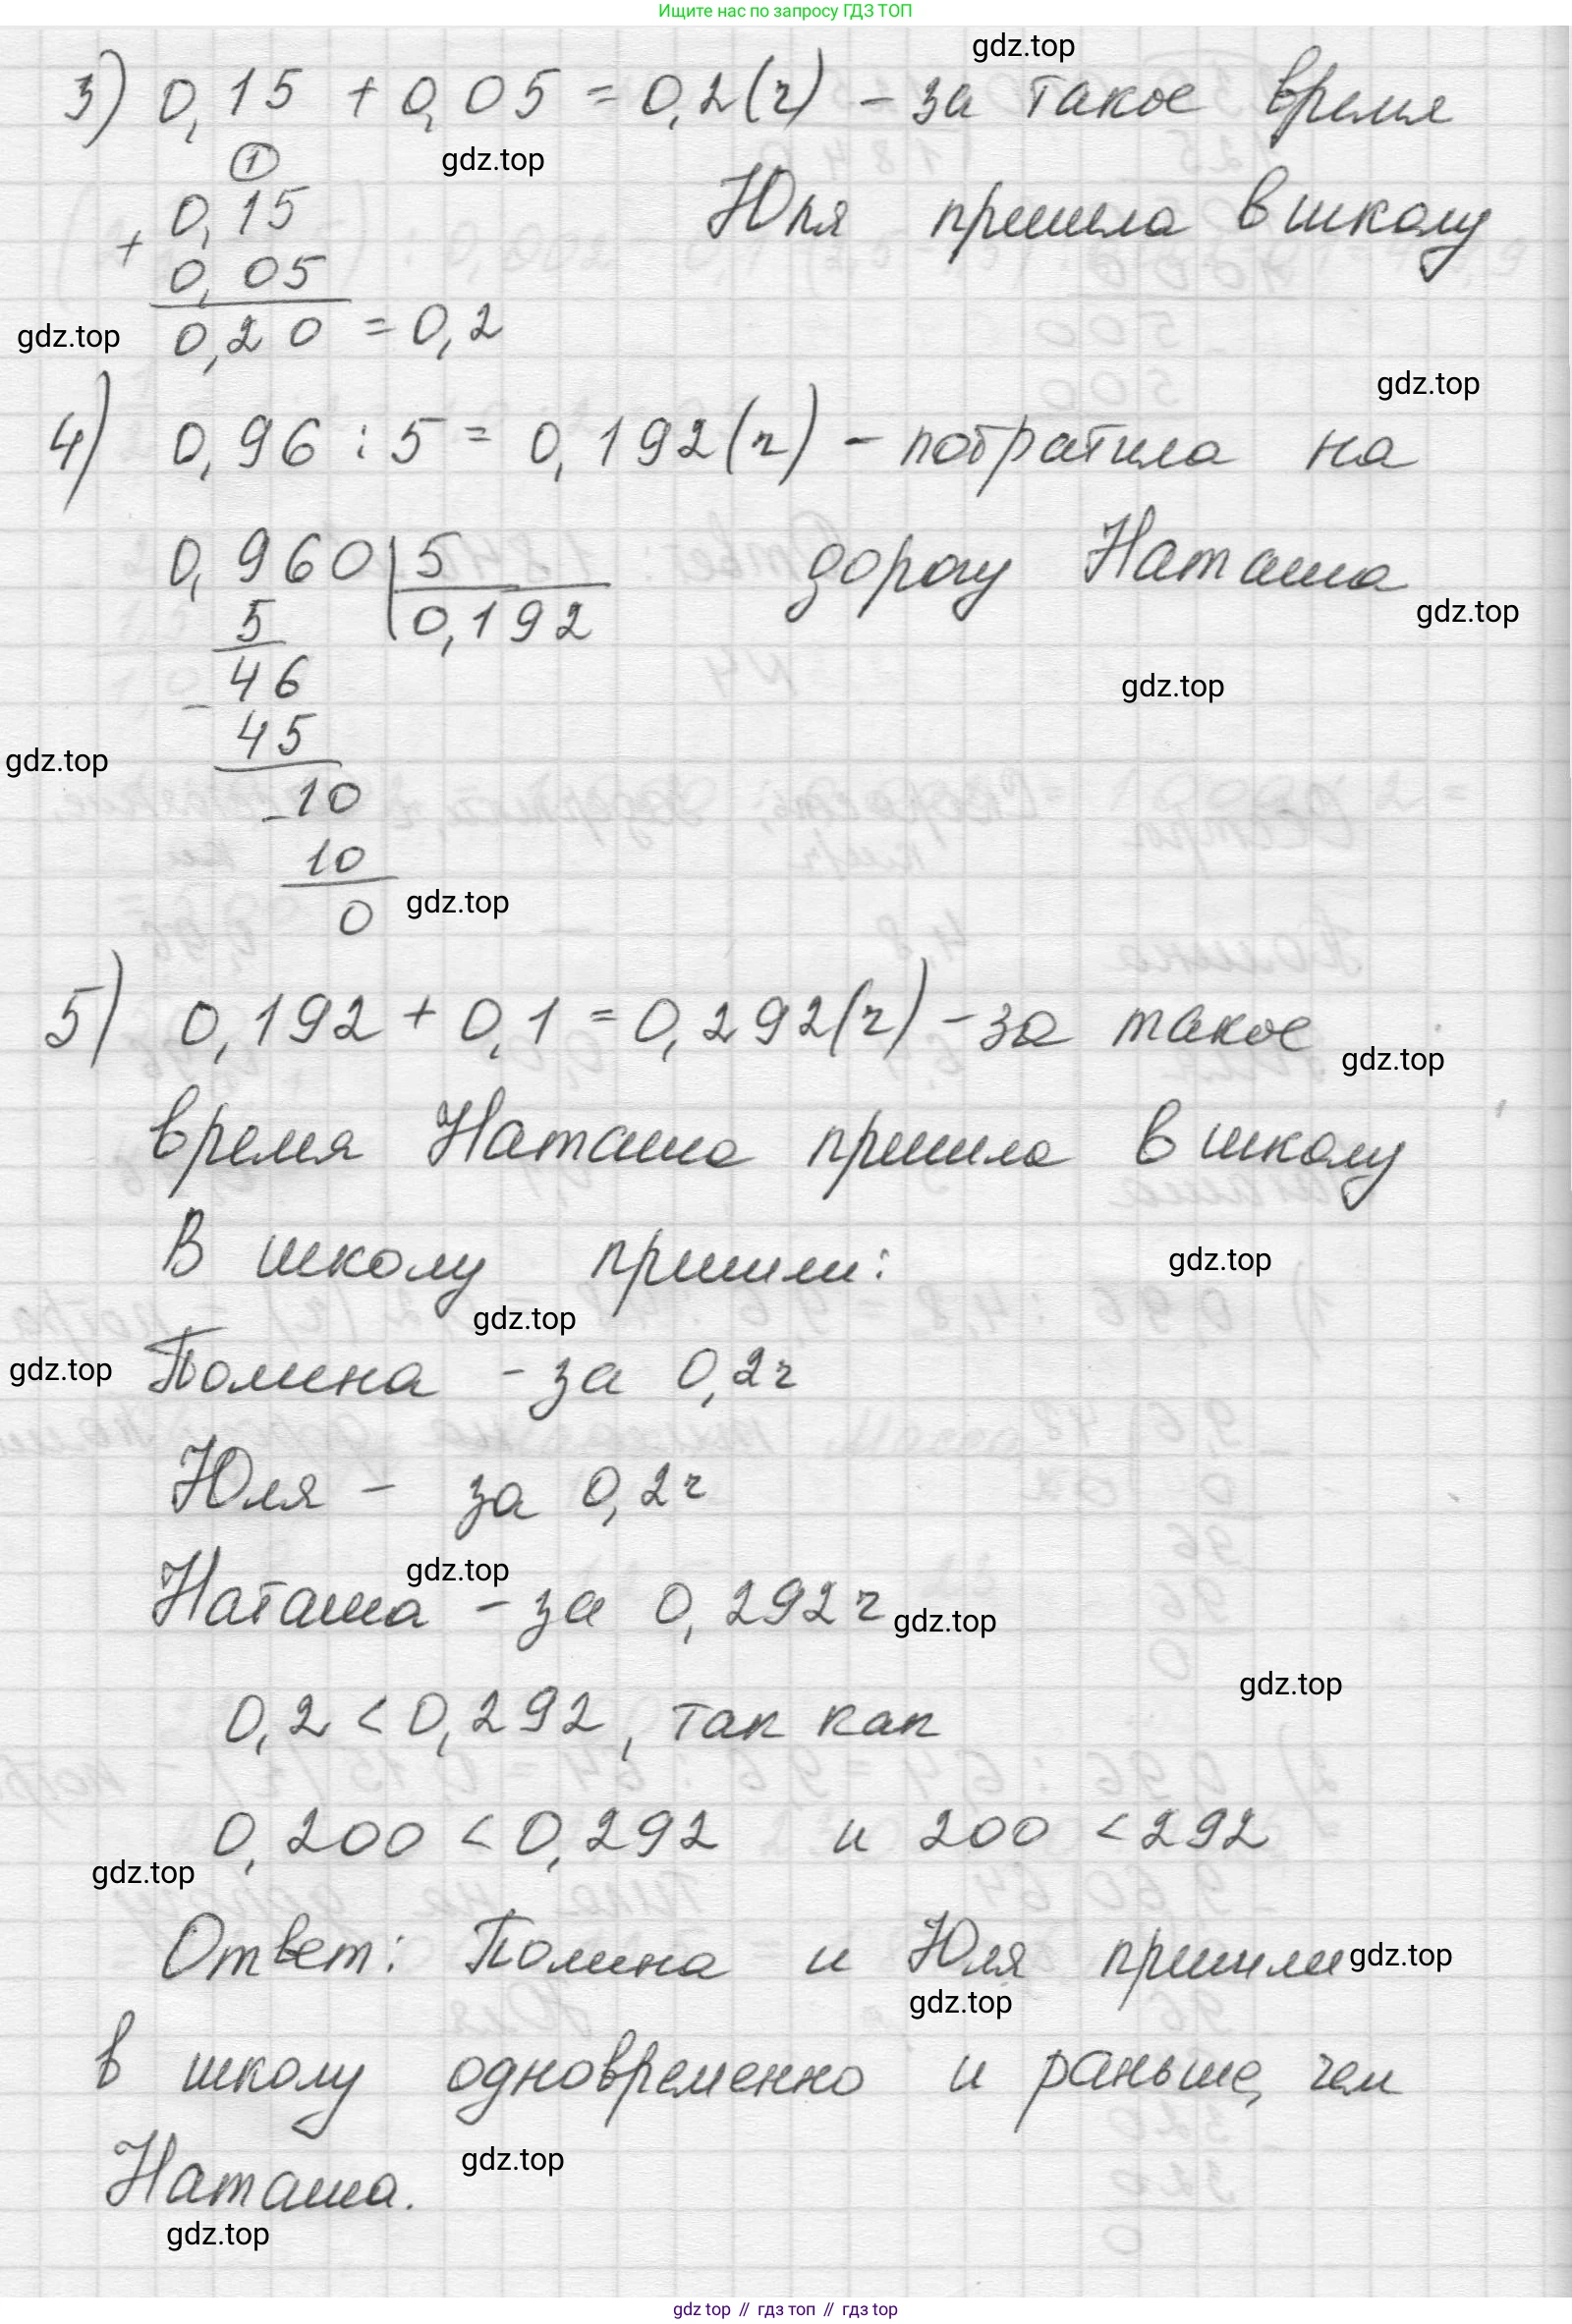 Ищите нас по запросу ГДЗ ТОП
gdz.top
3) 0,15 + 0,05 = 0,2 (ч) - за такое время
1
gdz.top
0,15
Юля пришла в школу
+
0,05
gdz.top
0,20 = 0,2
gdz.top
4) 0,96 : 5 = 0,192 (ч) - потратила на
0,960 | 5
дорогу Наташа
5
0,192
gdz.top
46
gdz.top
-
45
gdz.top
-10
10
gdz.top
0
5) 0,192 + 0,1 = 0,292 (ч) - за такое
gdz.top
время Наташа пришла в школу
В школу пришли:
gdz.top
gdz.top
gdz.top
Полина - за 0,2 ч
Юля - за 0,2 ч
gdz.top
Наташа - за 0,292 ч
gdz.top
gdz.top
0,2 < 0,292, так как
0,200 < 0,292 и 200 < 292
gdz.top
Ответ: Полина и Юля пришли
gdz.top
gdz.top
в школу одновременно и раньше, чем
gdz.top
Наташа.
gdz.top
gdz top // гдз топ // гдз top